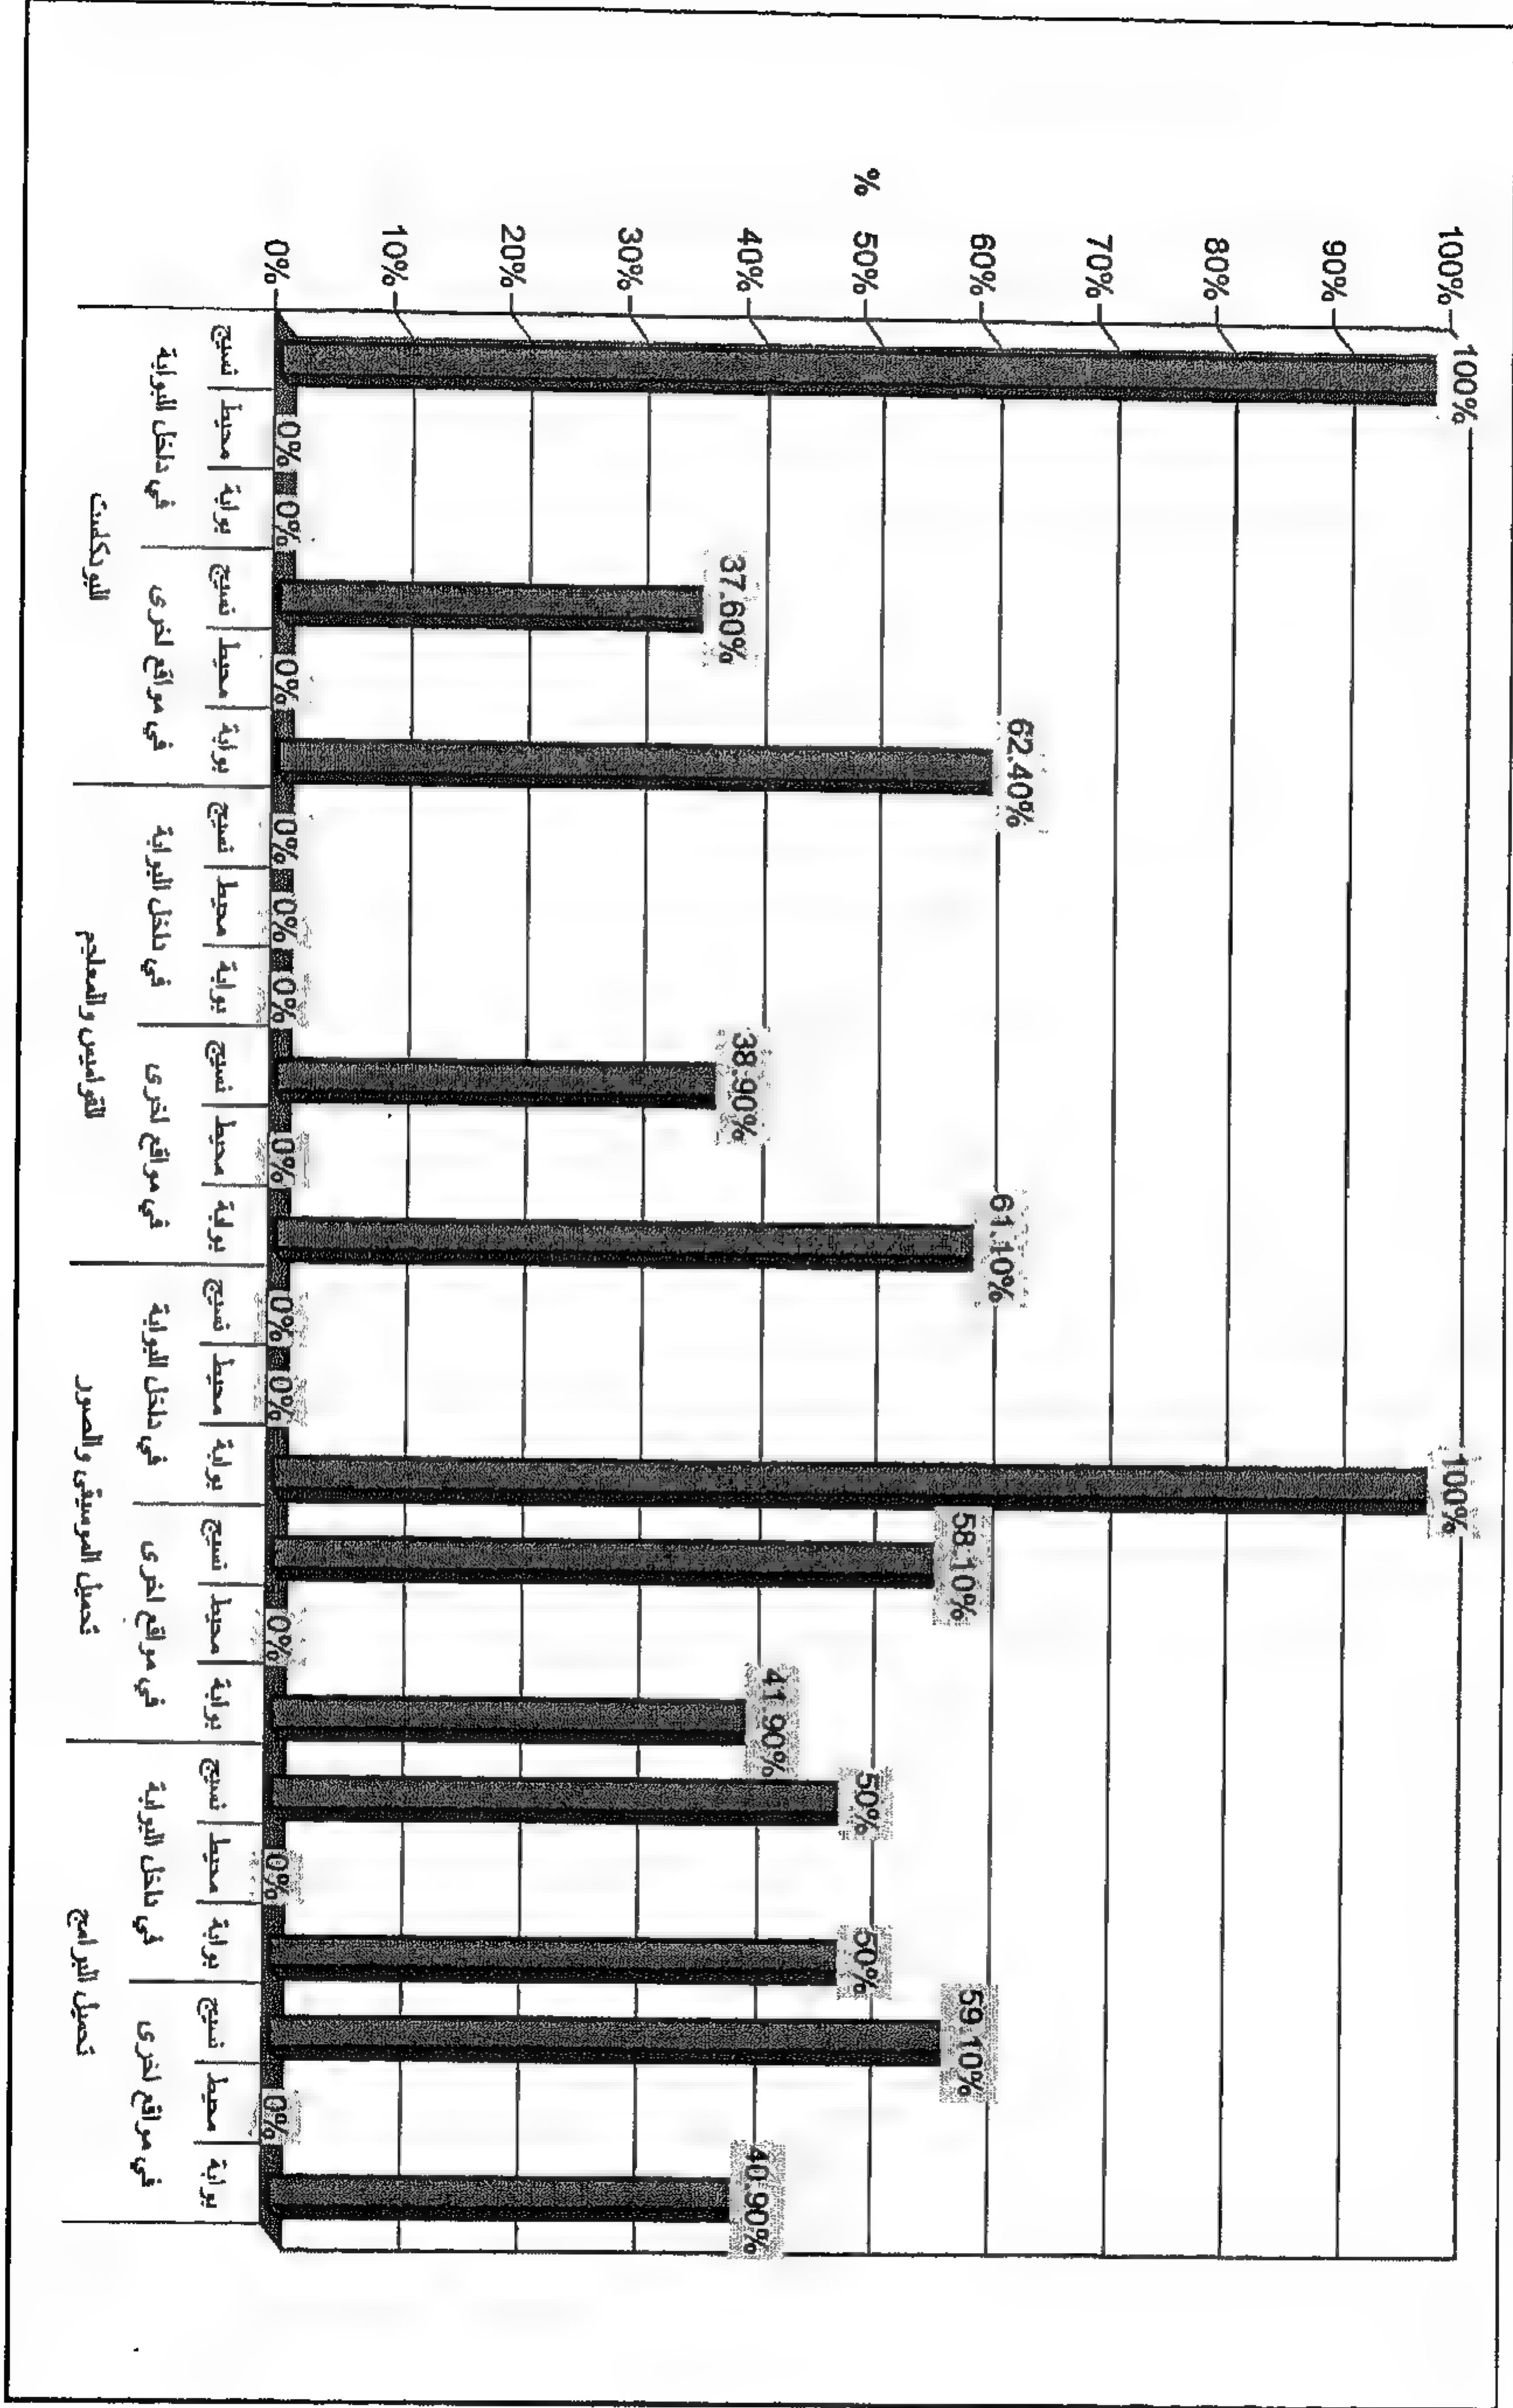 %
100%
90%
80%
70%
60%
50%
40%
30%
20%
10%
0%
100%
0%
0%
37.60%
0%
62.40%
0%
0%
0%
38.90%
0%
61.10%
0%
0%
100%
58.10%
0%
41.90%
50%
0%
50%
59.10%
0%
40.90%
نسيج محيط بوابة نسيج محيط بوابة نسيج محيط بوابة نسيج محيط بوابة نسيج محيط بوابة نسيج محيط بوابة نسيج محيط بوابة نسيج محيط بوابة
في داخل البوابة في مواقع اخرى في داخل البوابة في مواقع اخرى في داخل البوابة في مواقع اخرى في داخل البوابة في مواقع اخرى
البودكاست القواميس والمعاجم تحميل الموسيقى والصور تحميل البرامج